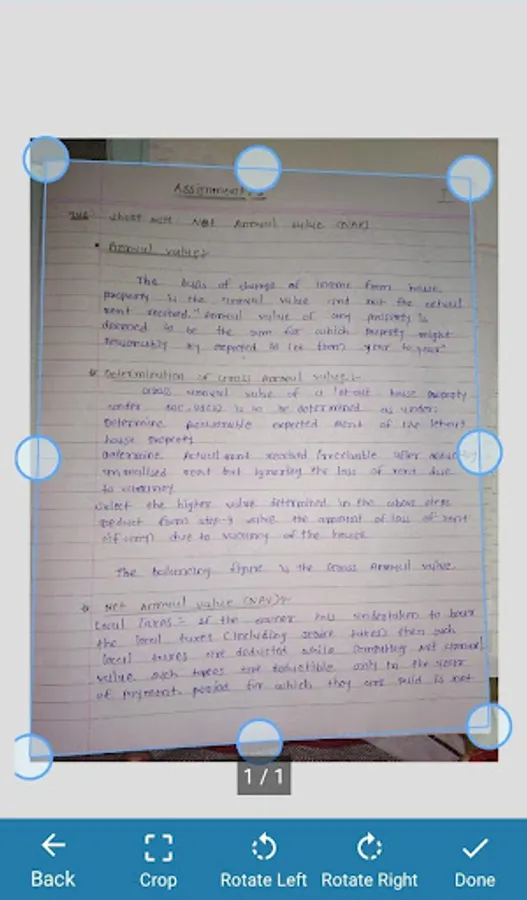 Assignment
Short note Net Annual value (NAV)
• Annual value:-
The basis of charge of income from house
property is the annual value and not the actual
rent received. "Annual value of any property is
deemed to be the sum for which property might
reasonably be expected to let from year to year"
Determination of Gross Annual value:-
Gross annual value of a let-out house property
under sec. is to be determined as under:
Determine reasonable expected rent of the letout
house property
determine Actual rent received/receivable after
unrealised rent but ignoring the loss of rent due
to vacancy
Select the higher value determined in the above steps
Deduct form step-3 value the amount of loss of rent
(if any) due to vacancy of the house.
The balancing figure is the Gross Annual value.
Net Annual value (NAV):-
Local Taxes = if the owner has undertaken to bear
the local taxes (including taxes) then such
local taxes are deducted while computing net annual
value such taxes are deductible only in the year
of payment. period for which they are paid is not
1 / 1
Back
Crop
Rotate Left
Rotate Right
Done